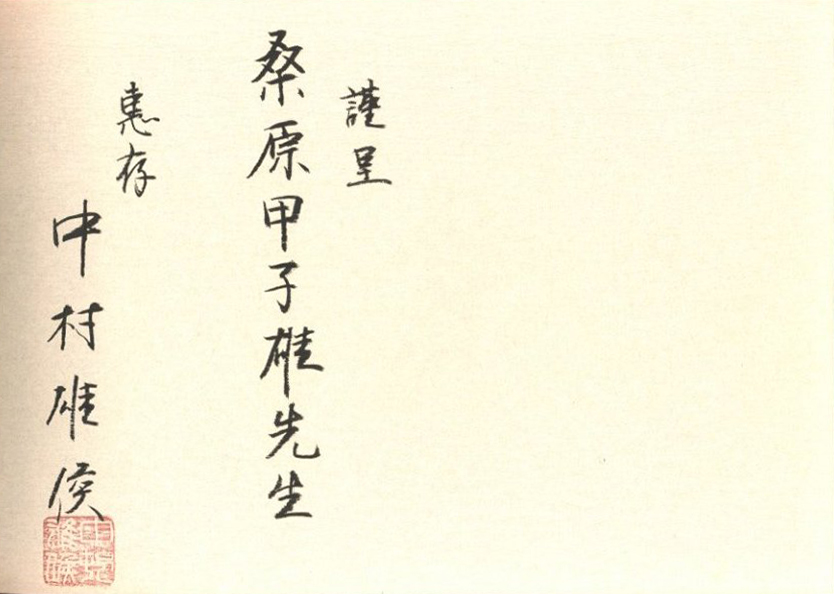 謹呈
桑原甲子雄先生
惠存
中村雄俟